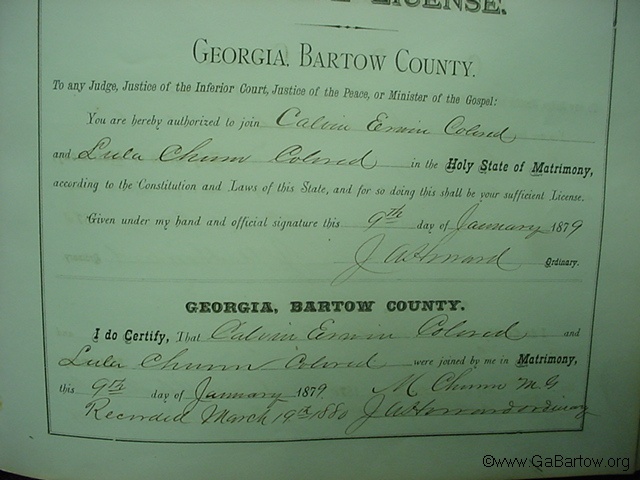 LICENSE.
GEORGIA, BARTOW COUNTY.
To any Judge, Justice of the Inferior Court, Justice of the Peace, or Minister of the Gospel:
You are hereby authorized to join Calvin Erwin Colored
and Lula Chunn Colored in the Holy State of Matrimony,
according to the Constitution and Laws of this State, and for so doing this shall be your sufficient License.
Given under my hand and official signature this 9th day of January 1879
J A Howard Ordinary.
GEORGIA, BARTOW COUNTY.
I do Certify, That Calvin Erwin Colored and
Lula Chunn Colored were joined by me in Matrimony,
this 9th day of January 1879 M Chunn M G
Recorded March 19th 1880 J A Howard ordinary
©www.GaBartow.org